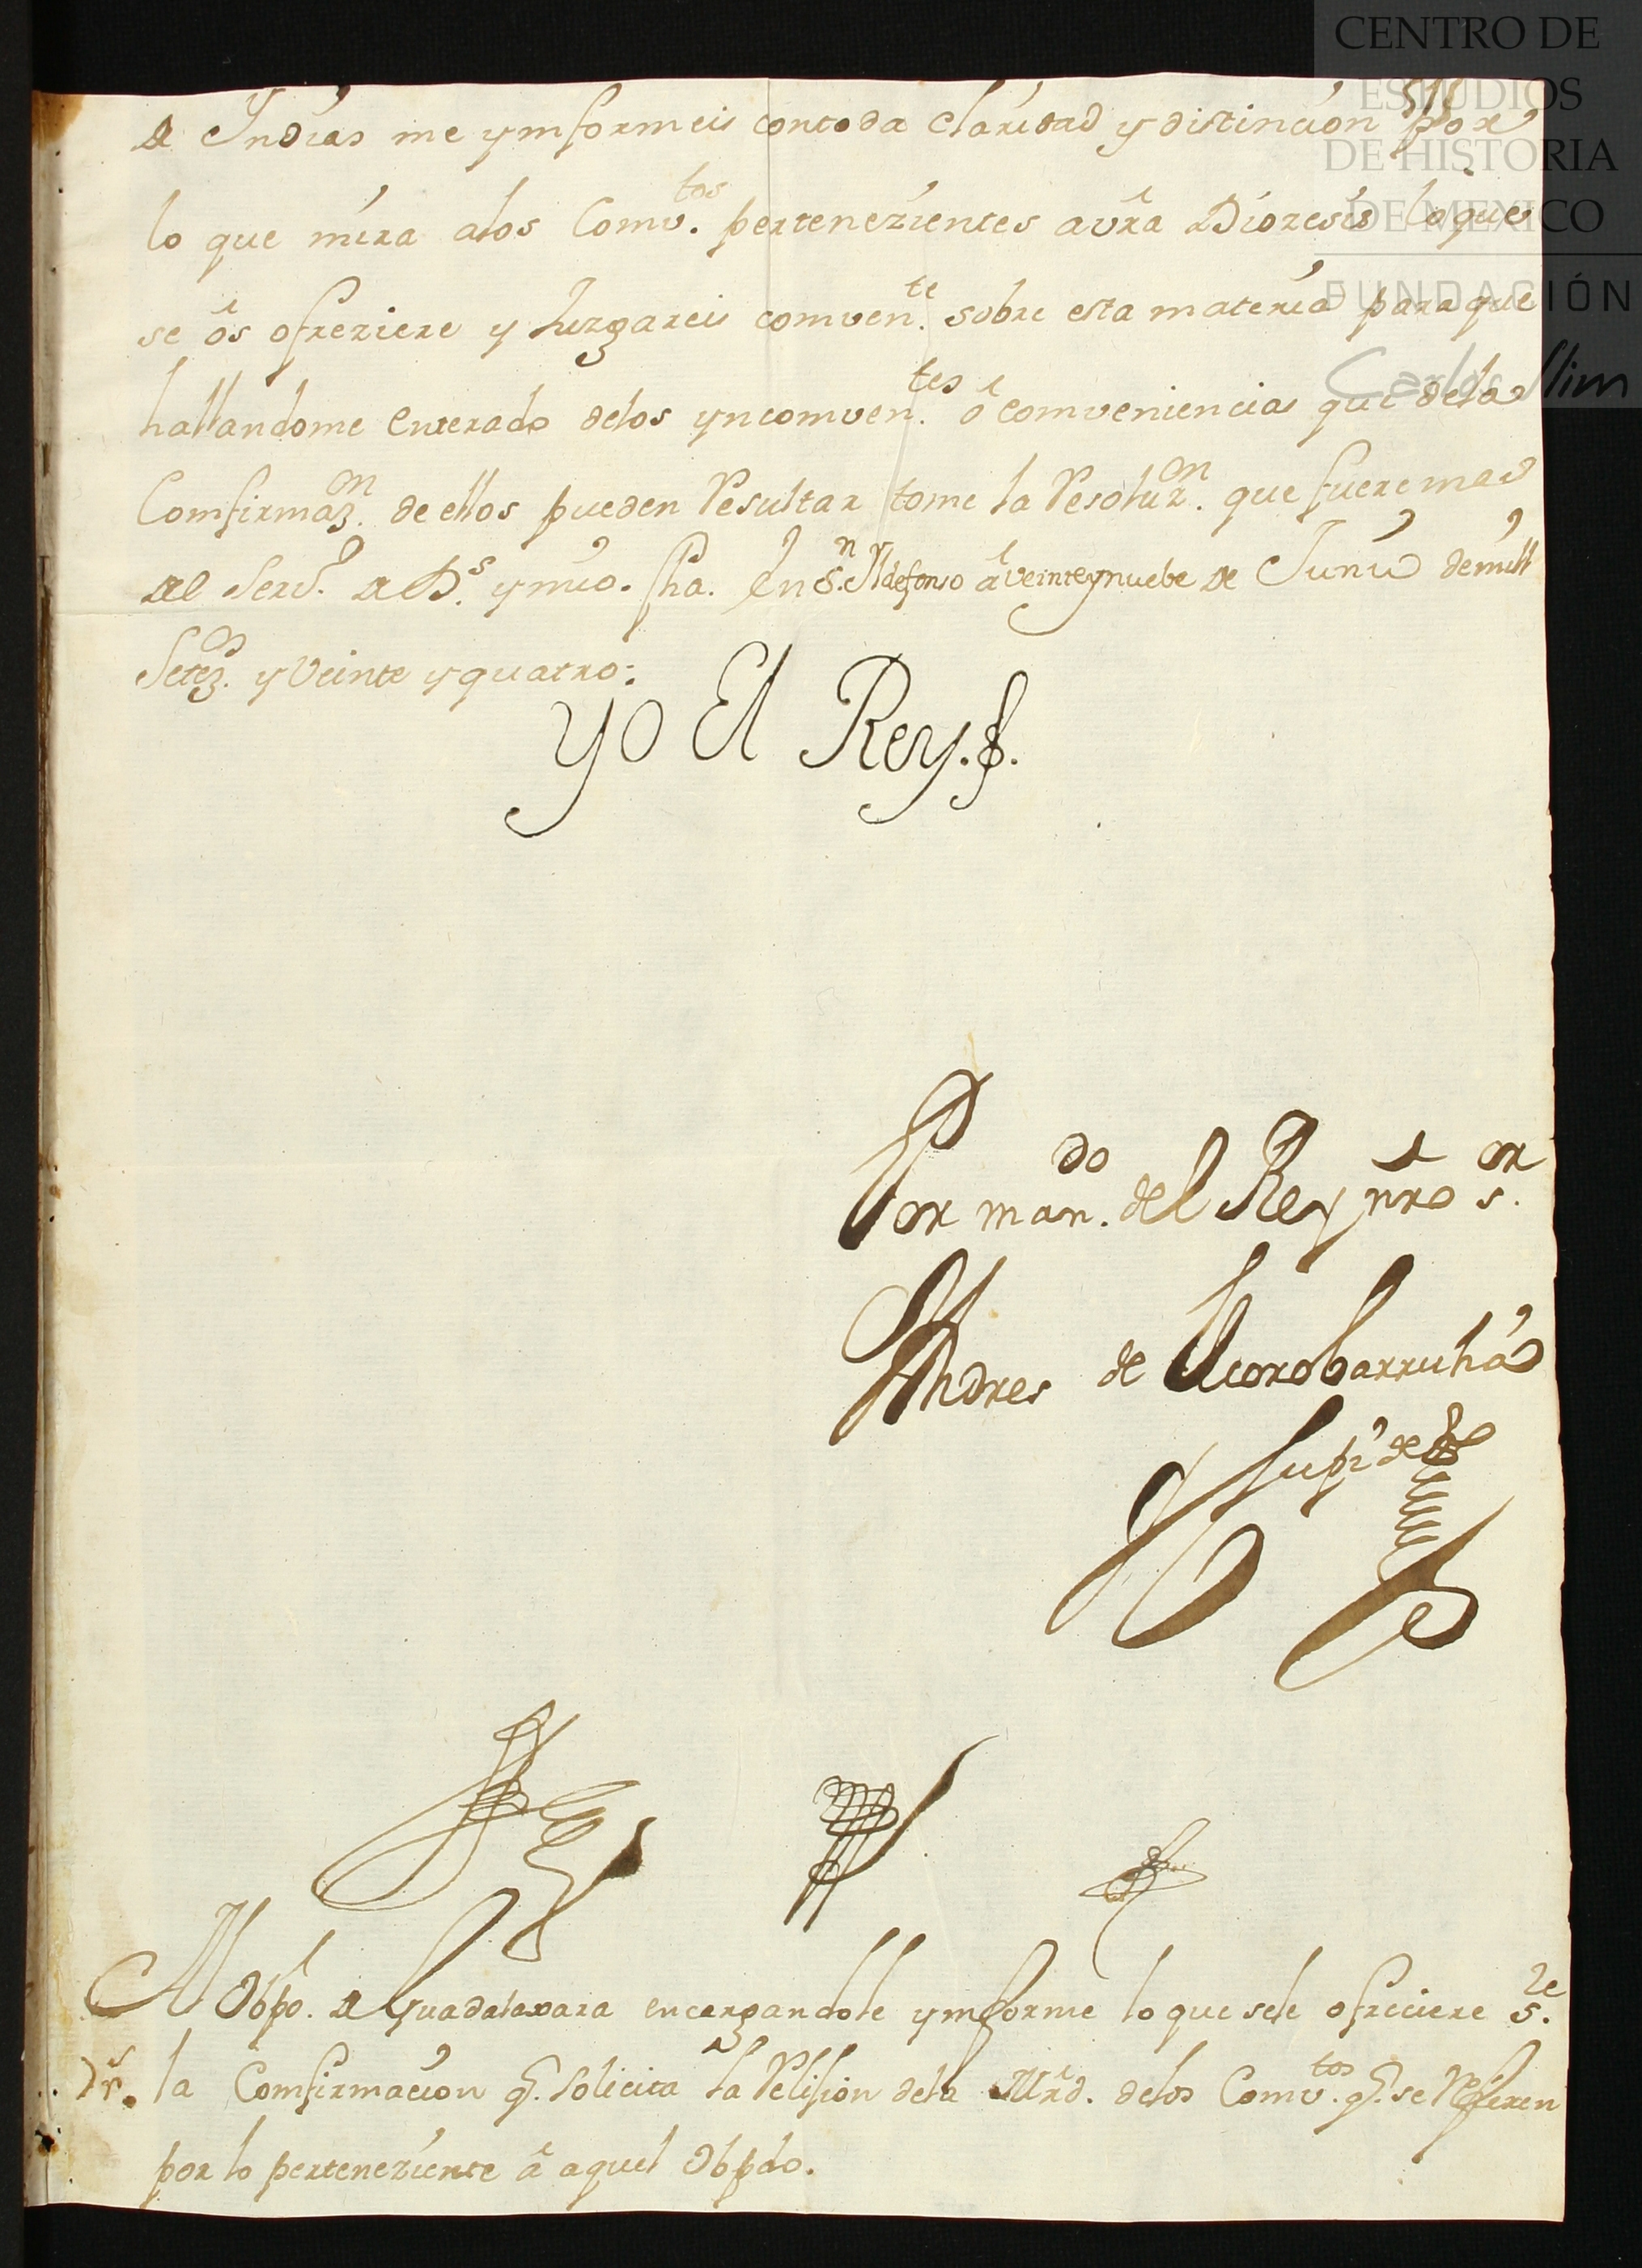 CENTRO DE
ESTUDIOS
DE HISTORIA
DE MEXICO
FUNDACIÓN
Carlos Slim
de Indias me ynformeis con toda claridad y distincion por
lo que mira a los Comv.tos pertenezientes a vra Diozesis lo que
se ôs ofreziere y Juzgareis comven.te sobre esta materia para que
hallandome enterado de los yncomven.tes ô comveniencias que de la
Comfirmaz.on de ellos pueden Resultar tome la Resoluz.on que fuere mas
del Serv.o de D.s y mio. fha. En S.n Yldefonso â veinte y nuebe de Junio de mill
Setez.os y Veinte y quatro:
Yo El Rey.
Por man.do del Rey nro s.or
Andres de Elcorobarrutia
Al Obpo. de Guadalaxara encargandole ymforme lo que se le ofreciere s.re
la Comfirmacion q. solicita la Relision de la Mrd. de los Comv.tos q. se Refieren
por lo perteneziente â aquel Obpdo.